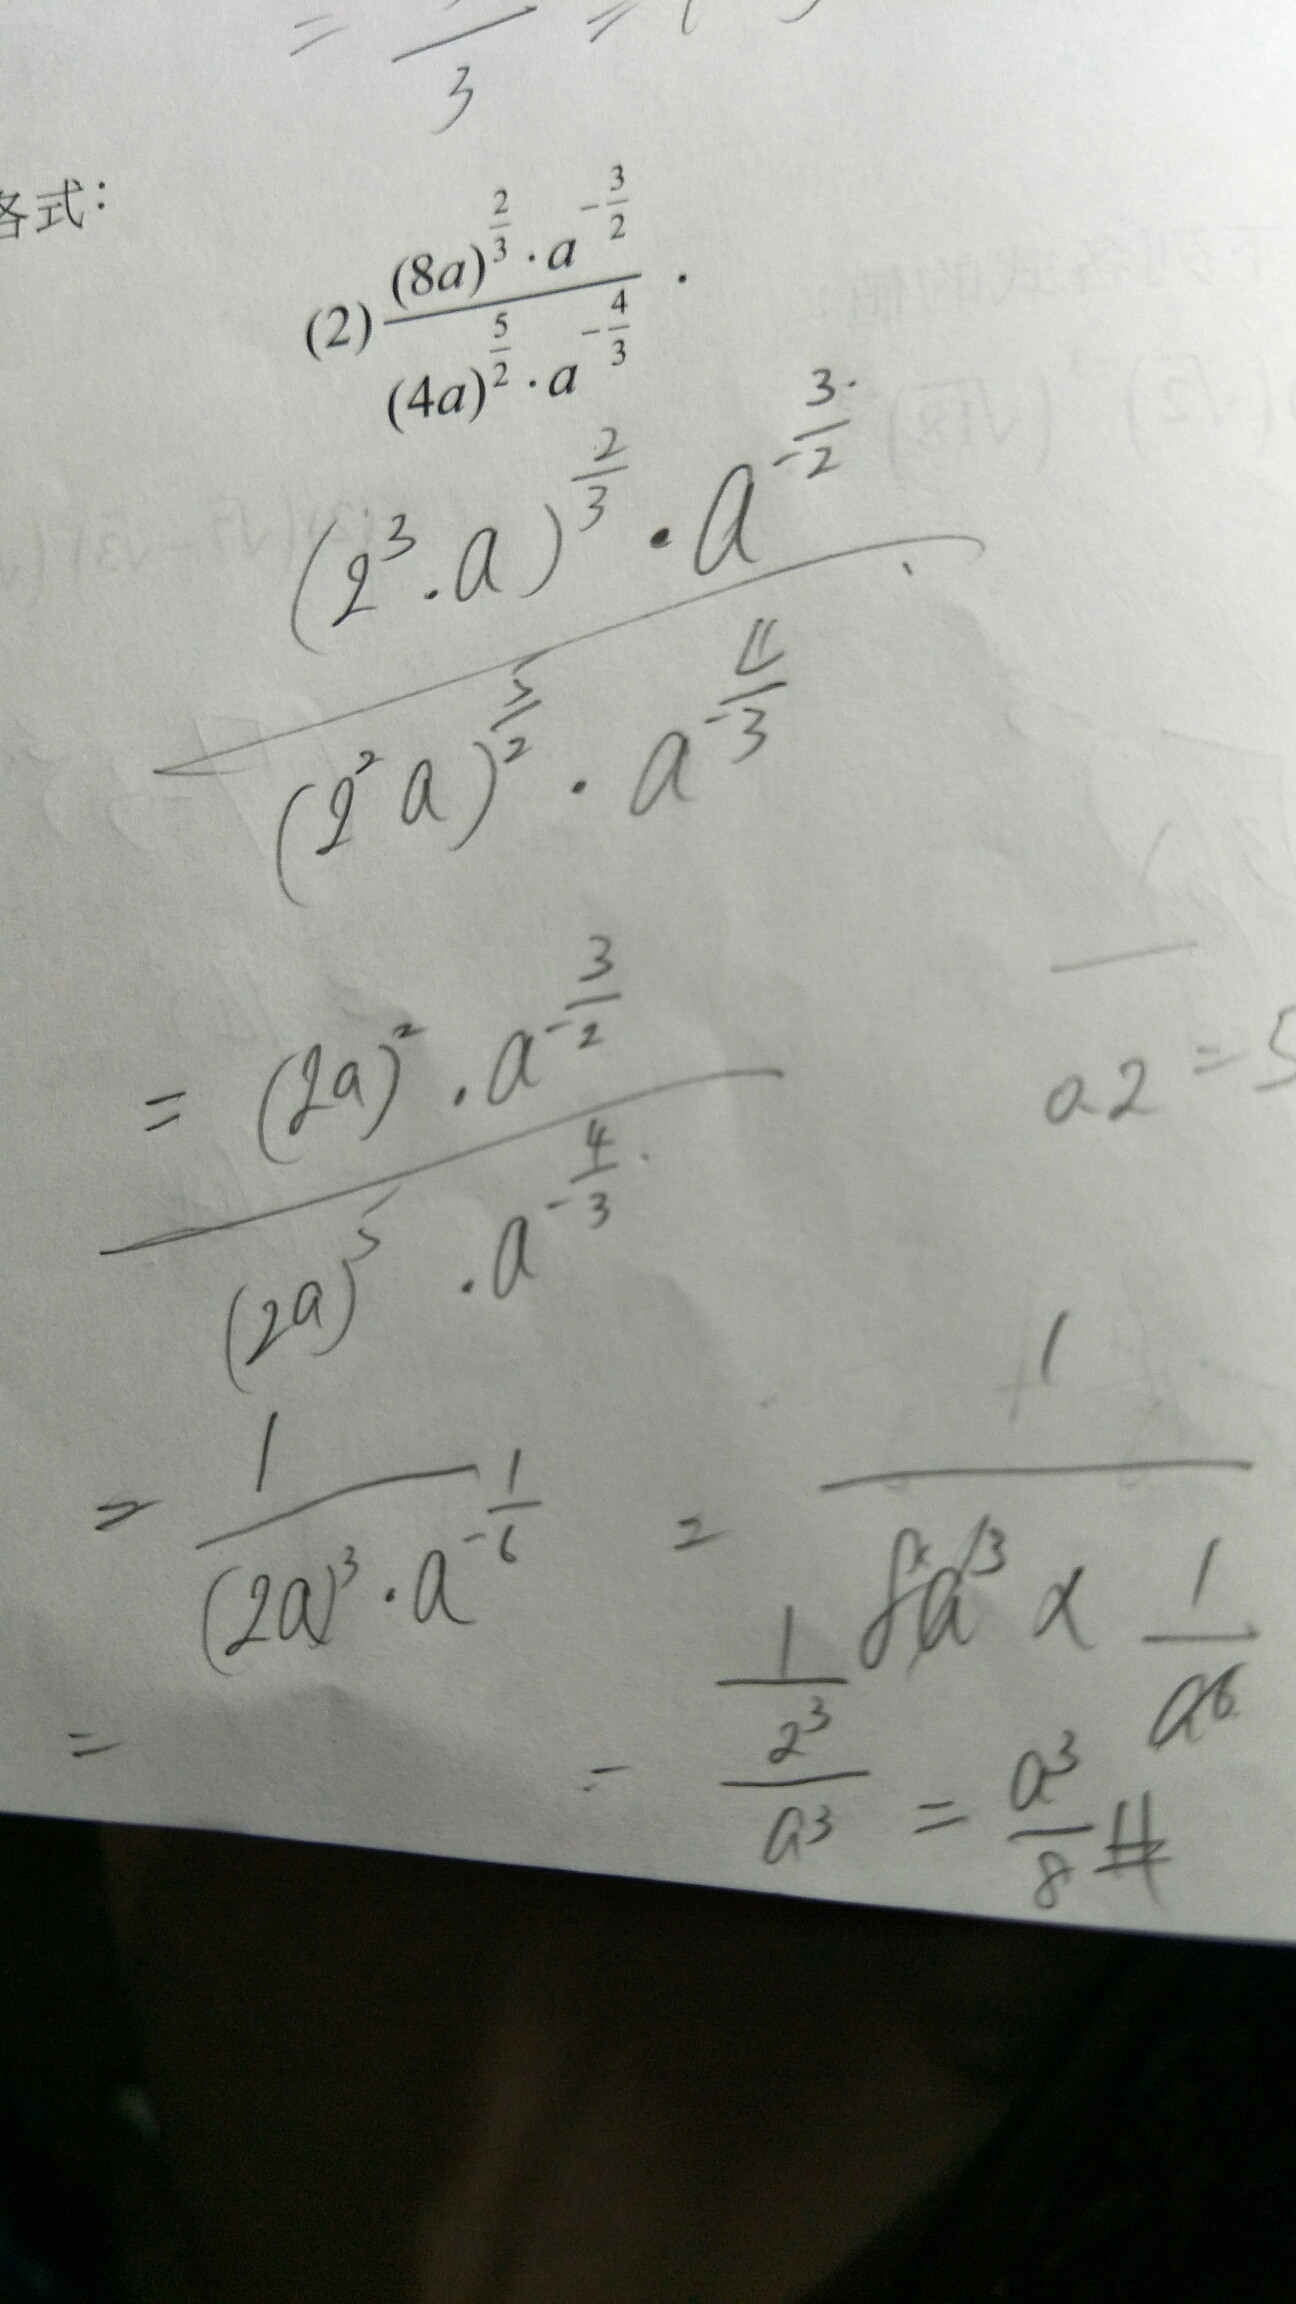 = ―/3 =
各式：
(2) \frac{(8a)^{\frac{2}{3}} \cdot a^{-\frac{3}{2}}}{(4a)^{\frac{5}{2}} \cdot a^{-\frac{4}{3}}}.
\frac{(2^3 \cdot a)^{\frac{2}{3}} \cdot a^{-\frac{3}{2}}}{(2^2 a)^{\frac{5}{2}} \cdot a^{-\frac{4}{3}}}
= \frac{(2a)^2 \cdot a^{-\frac{3}{2}}}{(2a)^5 \cdot a^{-\frac{4}{3}}}
a2 = 5
= \frac{1}{(2a)^3 \cdot a^{-\frac{1}{6}}} = \frac{1}{8a^3 × \frac{1}{a^6}}
=
= \frac{1}{\frac{2^3}{a^3}} = \frac{a^3}{8} #